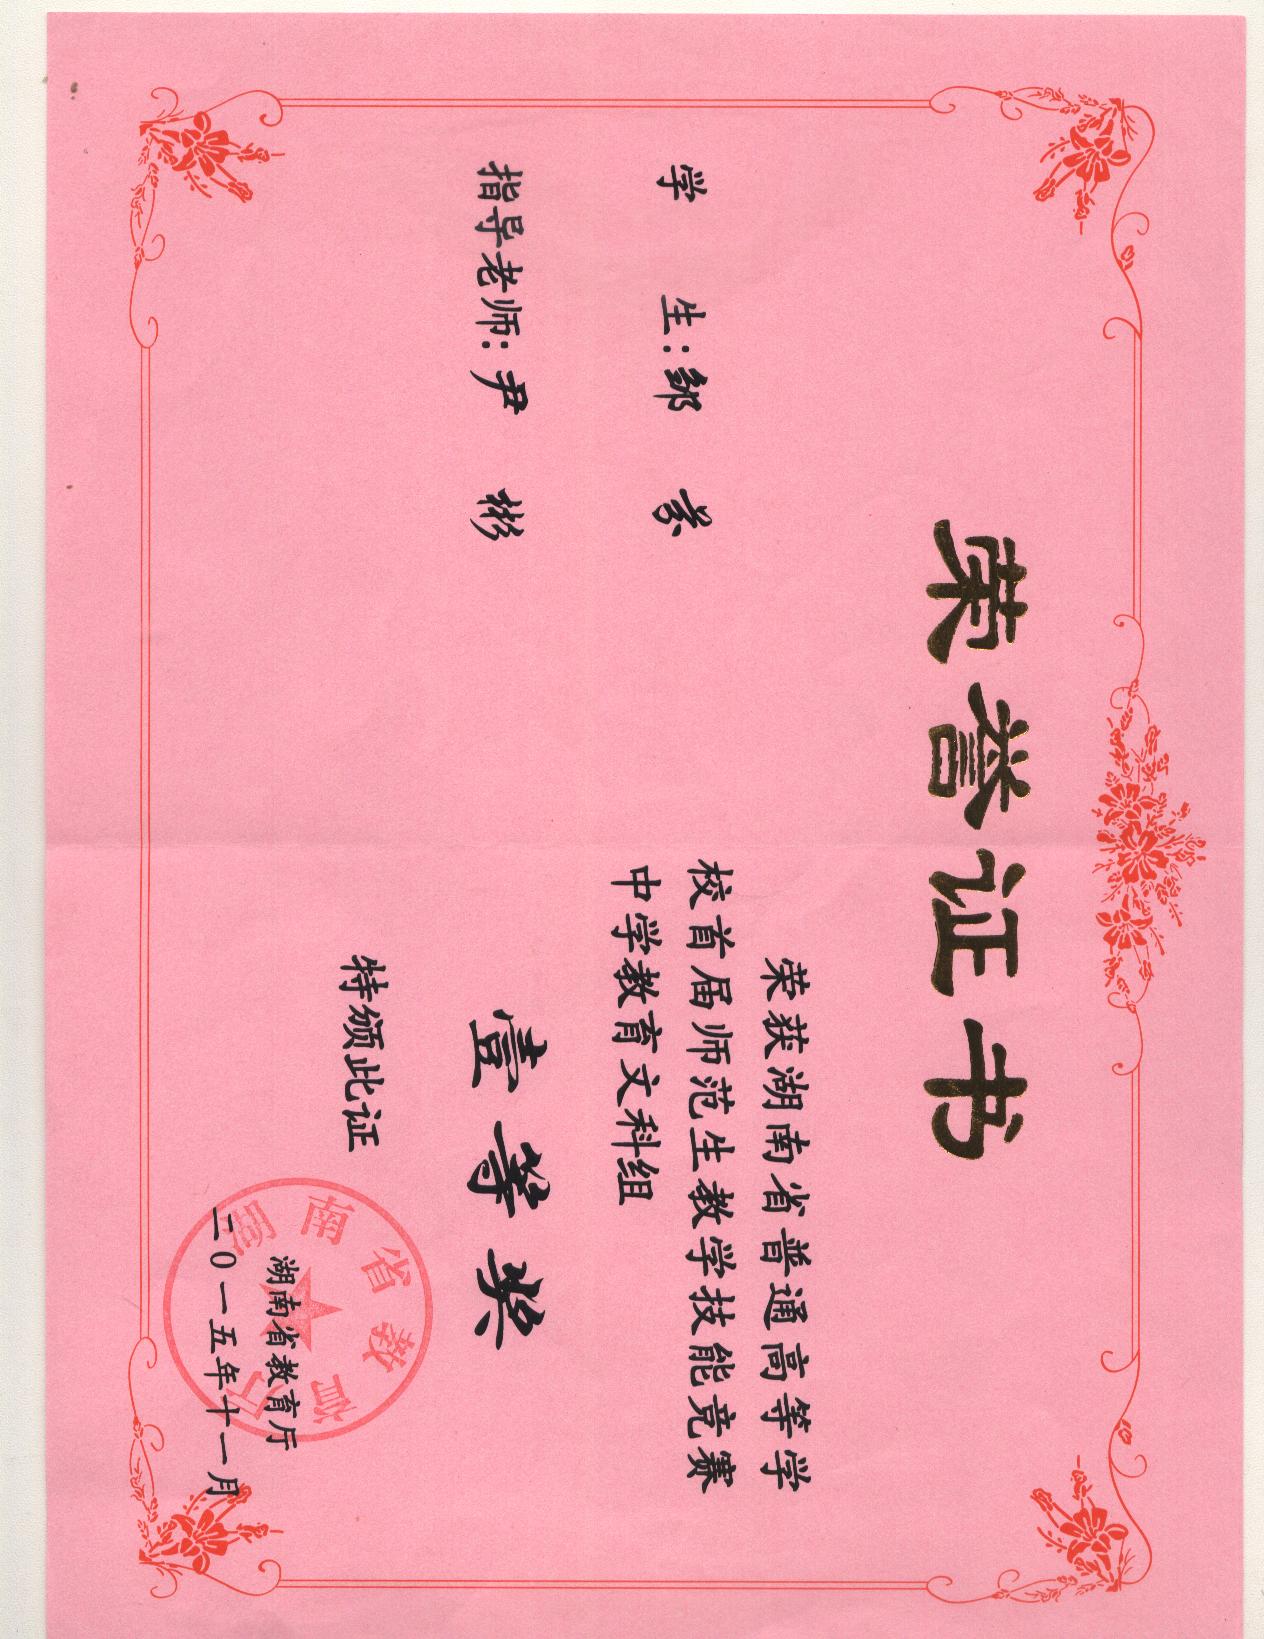 荣誉证书
学 生:邹 蒙
指导老师:尹 彬
荣获湖南省普通高等学
校首届师范生教学技能竞赛
中学教育文科组
壹等奖
特颁此证
湖南省教育厅
二0一五年十一月
湖南省教育厅